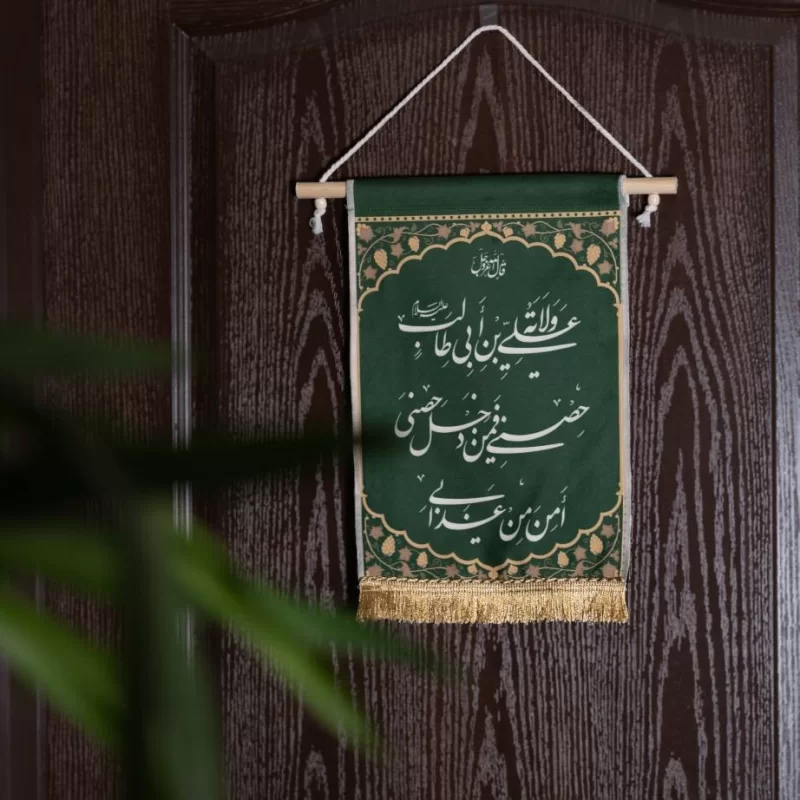 قال الله عزوجل
وَلَایَةُ عَلِيِّ بْنِ أَبِي طَالِبٍ علیه‌السلام
حِصْنِي فَمَنْ دَخَلَ حِصْنِي
أَمِنَ مِنْ عَذَابِي